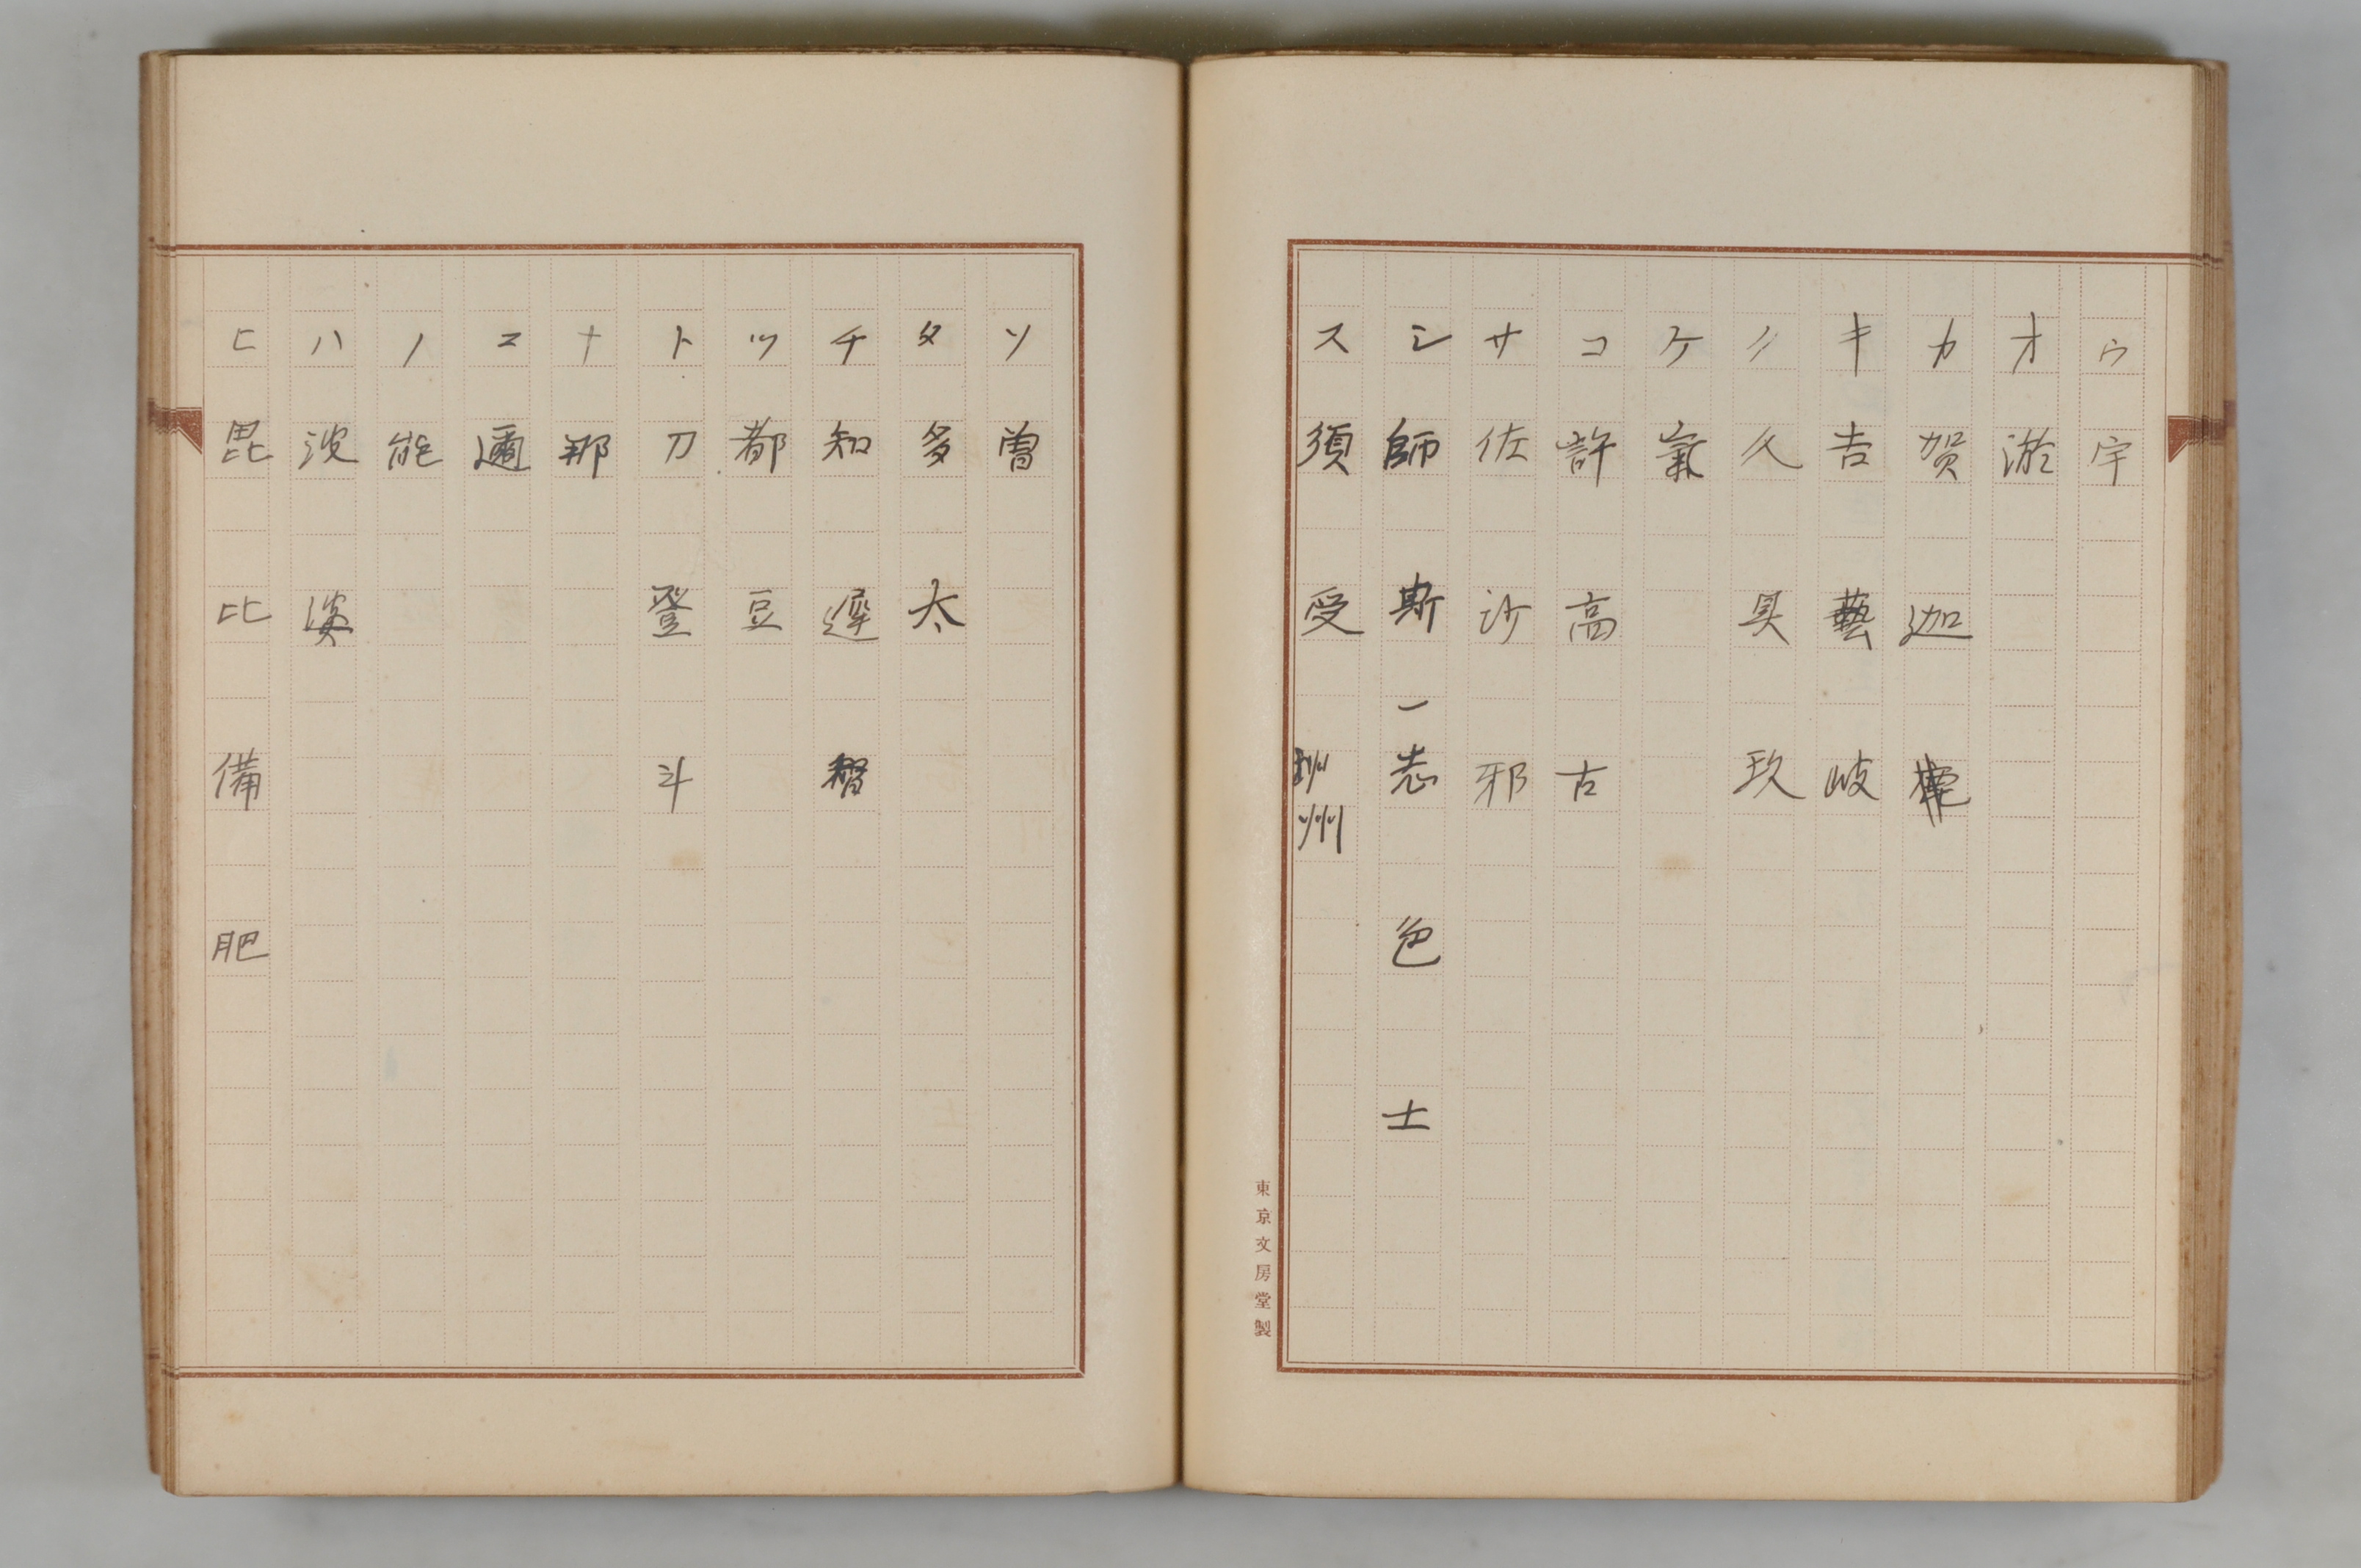 ウ 宇
オ 淤
カ 賀 迦
キ 吉 藝 岐
ク 久 具 玖
ケ 氣
コ 許 高 古
サ 佐 沙 邪
シ 師 斯 志 色 士
ス 須 受 州
東京文房堂製
ソ 曽
タ 多 太
チ 知 遅 智
ツ 都 豆
ト 刀 登 斗
ナ 那
ニ 邇
ノ 能
ハ 波 婆
ヒ 毘 比 備 肥